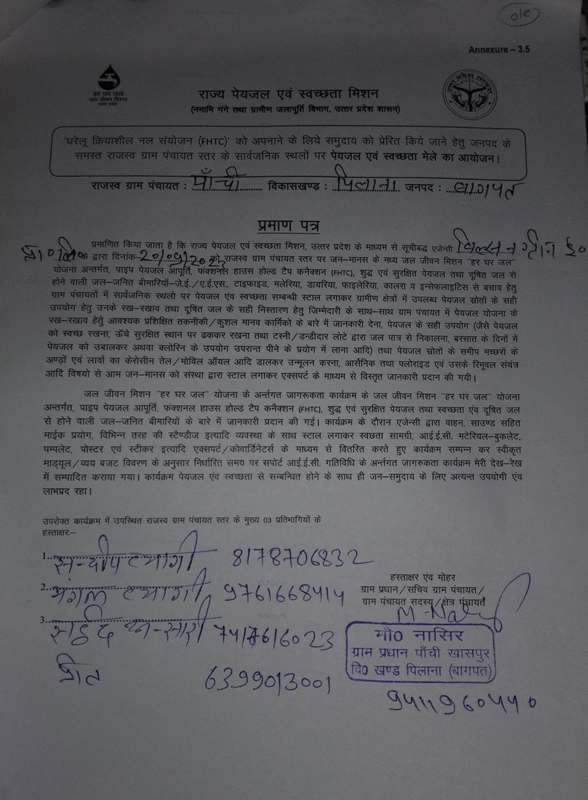 ok
Annexure – 3.5
राज्य पेयजल एवं स्वच्छता मिशन
(नमामि गंगे तथा ग्रामीण जलापूर्ति विभाग, उत्तर प्रदेश शासन)
'घरेलू क्रियाशील नल संयोजन (FHTC)' को अपनाने के लिये समुदाय को प्रेरित किये जाने हेतु जनपद के
समस्त राजस्व ग्राम पंचायत स्तर के सार्वजनिक स्थलों पर पेयजल एवं स्वच्छता मेले का आयोजन।
राजस्व ग्राम पंचायत : पाँची विकासखण्ड : पिलाना जनपद : बागपत
प्रमाण पत्र
प्रमाणित किया जाता है कि राज्य पेयजल एवं स्वच्छता मिशन, उत्तर प्रदेश के माध्यम से सूचीबद्ध एजेन्सी विल्सन ग्रीन इ०
प्रा० लि० के द्वारा दिनांक- राजस्व ग्राम पंचायत स्तर पर जन-मानस के मध्य जल जीवन मिशन "हर घर जल"
योजना अन्तर्गत, पाइप पेयजल आपूर्ति, फंक्शनल हाउस होल्ड टैप कनैक्शन (FHTC), शुद्ध एवं सुरक्षित पेयजल तथा दूषित जल से
होने वाली जल-जनित बीमारियों-जे.ई./ए.ई.एस, टाइफाइड, मलेरिया, डायरिया, फाइलेरिया, कालरा व इन्सेफलाइटिस से बचाव हेतु
ग्राम पंचायतों में सार्वजनिक स्थलों पर पेयजल एंव स्वच्छता सम्बन्धी स्टाल लगाकर ग्रामीण क्षेत्रों में उपलब्ध पेयजल स्रोतों के सही
उपयोग हेतु उनके रख-रखाव तथा दूषित जल के सही निस्तारण हेतु जिम्मेदारी के साथ-साथ ग्राम पंचायत में पेयजल योजना के
रख-रखाव हेतु आवश्यक प्रशिक्षित तकनीकी/कुशल मानव कार्मिको के बारे में जानकारी देना, पेयजल के सही उपयोग (जैसे पेयजल
को स्वच्छ रखना, ऊँचे सुरक्षित स्थान पर ढककर रखना तथा टस्नी/डन्डीदार लोटे द्वारा जल पात्र से निकालना, बरसात के दिनों में
पेयजल को उबालकर अथवा क्लोरिन के उपयोग उपरान्त पीने के प्रयोग में लाना आदि) तथा पेयजल स्रोतों के समीप मच्छरों के
अण्डों एवं लार्वा का केरोसीन तेल/मोविल ऑयल आदि डालकर उन्मूलन करना, आर्सेनिक तथा फ्लोराइड एवं उसके रिमूवल संयंत्र
आदि विषयो से आम जन-मानस को संस्था द्वारा स्टाल लगाकर एक्सपर्ट के माध्यम से विस्तृत जानकारी प्रदान की गयी।
जल जीवन मिशन "हर घर जल" योजना के अन्तर्गत जागरूकता कार्यक्रम के जल जीवन मिशन "हर घर जल" योजना
अन्तर्गत, पाइप पेयजल आपूर्ति, फंक्शनल हाउस होल्ड टैप कनैक्शन (FHTC), शुद्ध एवं सुरक्षित पेयजल तथा स्वच्छता एंव दूषित जल
से होने वाली जल-जनित बीमारियों के बारे में जानकारी प्रदान की गई। कार्यक्रम के दौरान एजेन्सी द्वारा वाहन, साउण्ड सहित
माईक प्रयोग, विभिन्न तरह की स्टैण्डीज इत्यादि व्यवस्था के साथ स्टाल लगाकर स्वच्छता सामग्री, आई.ई.सी. मटेरियल-बुकलेट,
पम्पलेट, पोस्टर एवं स्टीकर इत्यादि एक्सपर्ट/कोवार्डिनेटर्स के माध्यम से वितरित करते हुए कार्यक्रम सम्पन्न कर स्वीकृत
माड्यूल/व्यय बजट विवरण के अनुसार निर्धारित समय पर सपोर्ट आई.ई.सी. गतिविधि के अर्न्तगत जागरुकता कार्यक्रम मेरी देख-रेख
में सम्पादित कराया गया। कार्यक्रम पेयजल एंव स्वच्छता से सम्बन्धित होने के साथ ही जन-समुदाय के लिए अत्यन्त उपयोगी एंव
लाभप्रद रहा।
उपरोक्त कार्यक्रम में उपस्थित राजस्व ग्राम पंचायत स्तर के मुख्य 03 प्रतिभागियों के
हस्ताक्षर-
1. सन्दीप त्यागी 8178706832
2. मंगल त्यागी 9761668414
3. सईद अन्सारी
प्रीत 6399013001
हस्ताक्षर एंव मोहर
ग्राम प्रधान/सचिव ग्राम पंचायत/
ग्राम पंचायत सदस्य/क्षेत्र पंचायत
मो० नासिर
ग्राम प्रधान पाँची खासपुर
वि० खण्ड पिलाना (बागपत)
9411960440